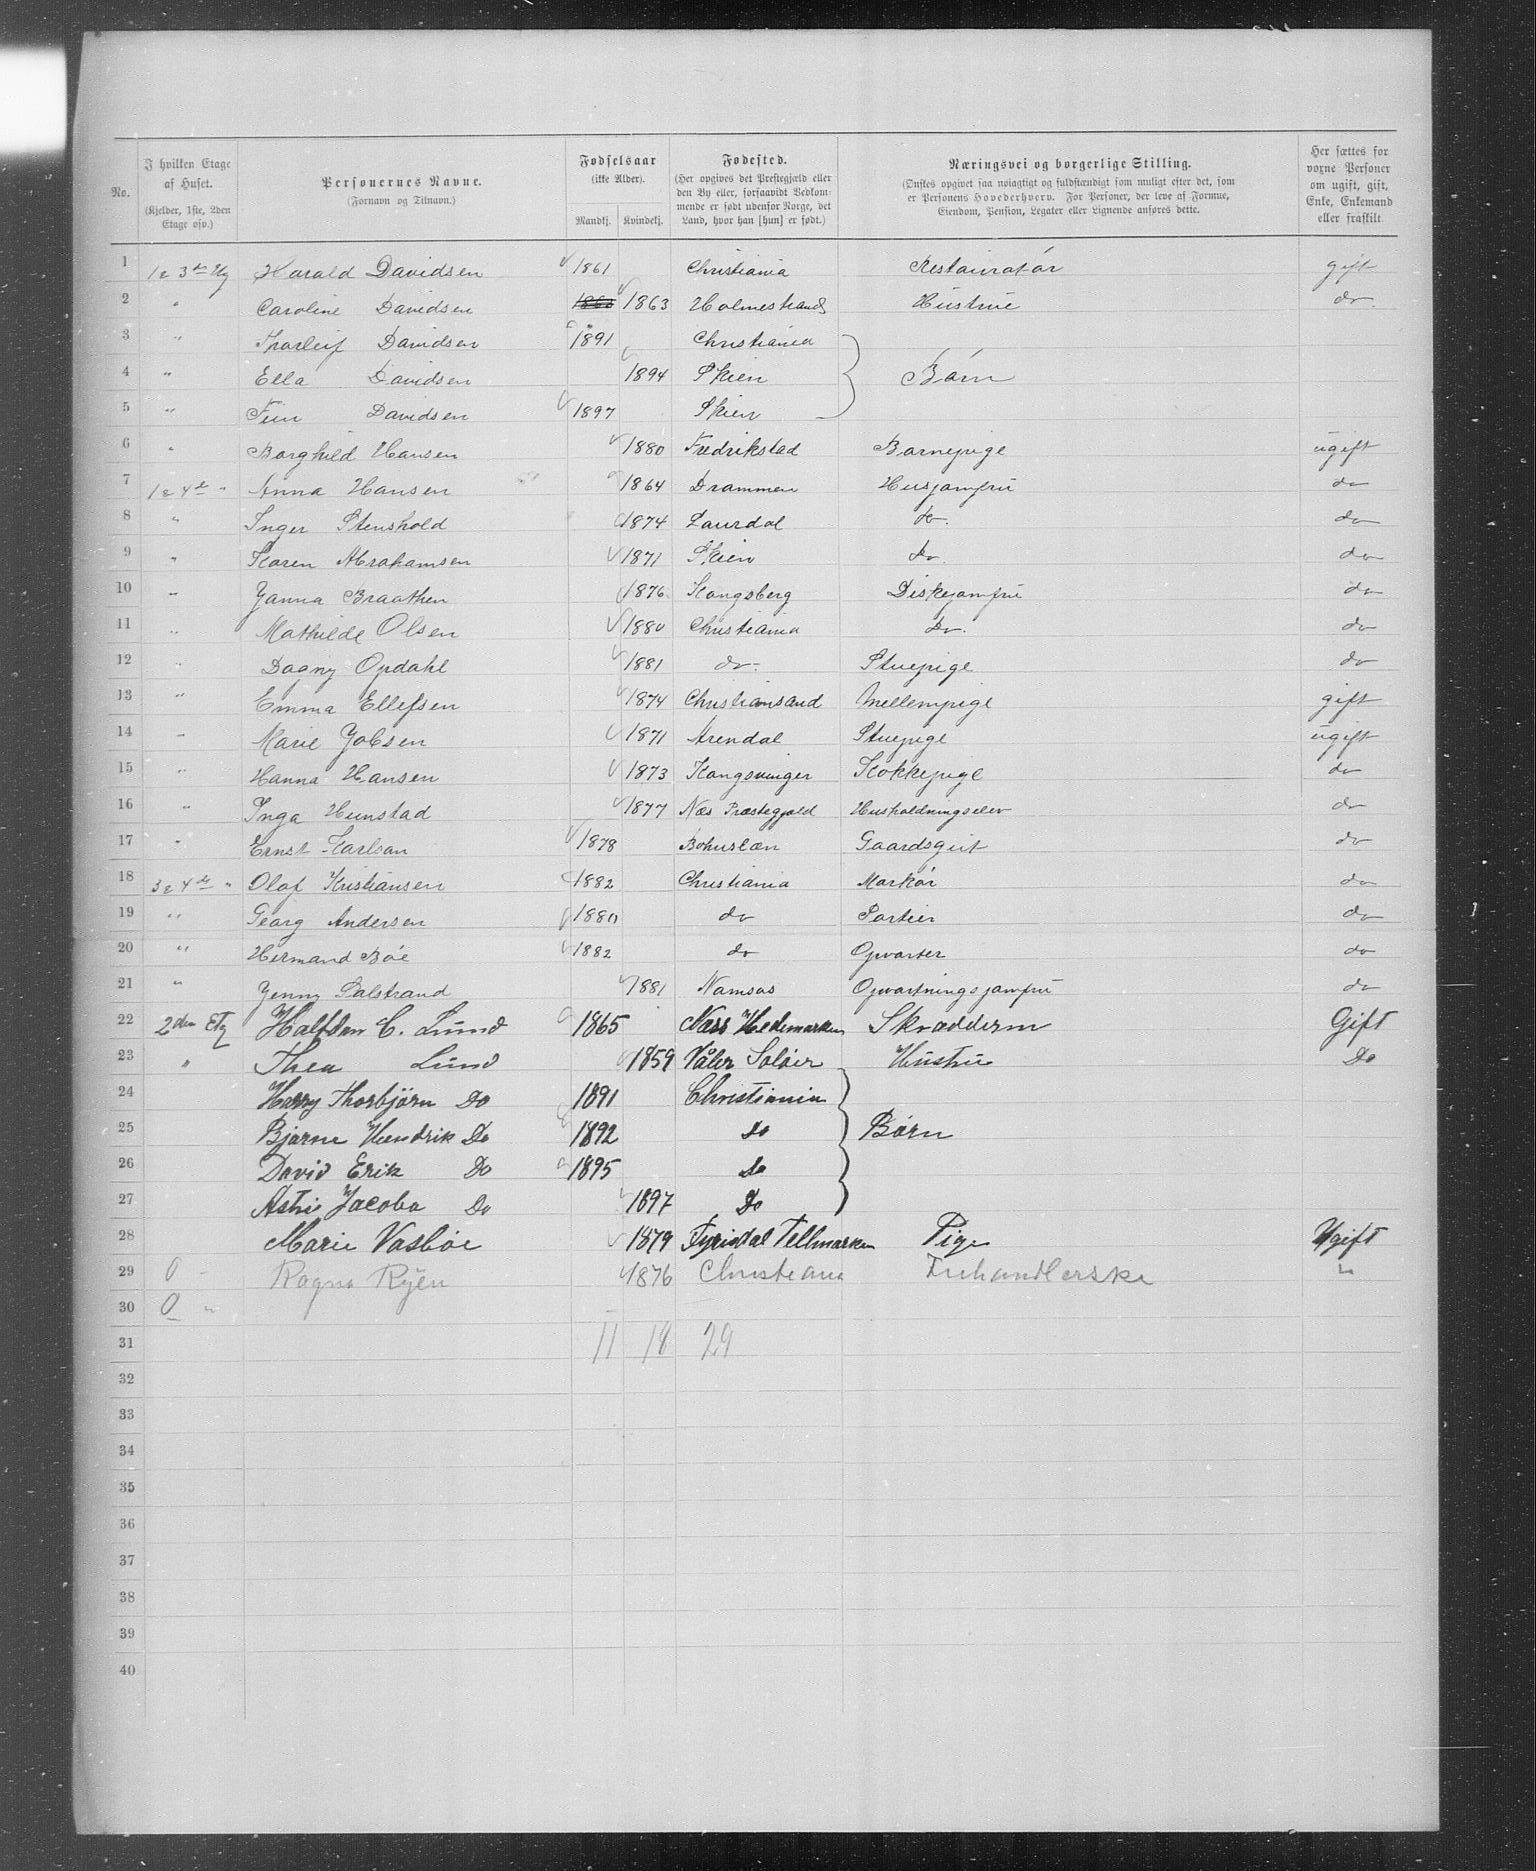 No.
I hvilken Etage af Huset. (Kjelder, 1ste, 2den Etage osv.)
Personernes Navne. (Fornavn og Tilnavn.)
Fødselsaar (ikke Alder). Mandkj. Kvindekj.
Fødested. (Her opgives det Prestegjæld eller den By eller, forsaavidt Vedkommende er født udenfor Norge, det Land, hvor han [hun] er født.)
Næringsvei og borgerlige Stilling. (Ønskes opgivet saa nøiagtigt og fuldstændigt som muligt efter det, som er Personens Hovederhverv. For Personer, der leve af Formue, Eiendom, Pension, Legater eller Lignende anføres dette.
Her sættes for voxne Personer om ugift, gift, Enke, Enkemand eller fraskilt
1 1 & 3die Etg Harald Davidsen 1861 Christiania Restauratør gift
2 " Caroline Davidsen 1863 Holmestrand Hustrue do.
3 " Thorleif Davidsen 1891 Christiania
4 " Ella Davidsen 1894 Skien Børn
5 " Finn Davidsen 1897 Skien
6 " Borghild Hansen 1880 Fredrikstad Barnepige ugift
7 1 & 4de " Anna Hansen 1864 Drammen Husjomfru do
8 " Inger Stenshold 1874 Laurdal do. do
9 " Karen Abrahamsen 1871 Skien do. do
10 " Janna Braathen 1876 Kongsberg Diskejomfru do
11 " Mathilde Olsen 1880 Christiania Do. do
12 " Dagny Opdahl 1881 do. Stuepige do
13 " Emma Ellefsen 1874 Christiansand Mellempige gift
14 " Marie Jobsen 1871 Arendal Stuepige ugift
15 " Hanna Hansen 1873 Kongsvinger Kokkepige do
16 " Inga Hunstad 1877 Næs Præstegjæld Husholdningselev do
17 " Ernst Karlson 1878 Bohuslæn Gaardsgut do
18 3 & 4de " Olaf Kristiansen 1882 Christiania Markør do
19 " Georg Andersen 1880 do Portier do
20 " Hermand Bøe 1882 do Opvarter do
21 " Jenny Salstrand 1881 Namsos Opvartningsjomfru do
22 2den Etg Halfdan C. Lund 1865 Næss Hedemarken Skrædderm Gift
23 " Thea Lund 1859 Våler Soløer Hustru Do
24 Harry Thorbjørn Do 1891 Christiania
25 Bjarne Hendrik Do 1892 Do Børn
26 David Erik Do 1895 Do
27 Astri Jacoba Do 1897 Do
28 Marie Vasbøe 1879 Fyrisdal Tellmarken Pige Ugift
29 0 - Ragna Ryen 1876 Christiania Fruhandlerske "
30 0 "
31 11 18 29
32
33
34
35
36
37
38
39
40